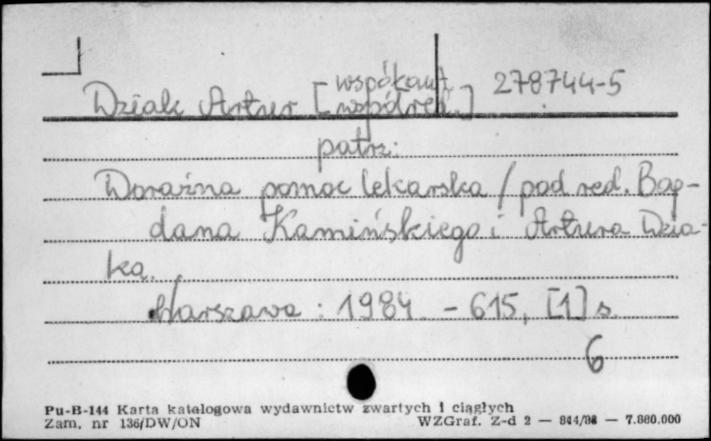 współaut.
Dziak Artur [współred.] 278744-5
patrz:
Doraźna pomoc lekarska / pod red. Bog-
dana Kamińskiego i Artura Dzia-
ka.
Warszawa : 1984. - 615, [1] s.
6
Pu-B-144 Karta katalogowa wydawnictw zwartych i ciągłych
Zam. nr 136/DW/ON WZGraf. Z-d 2 — 844/84 — 7.880.000